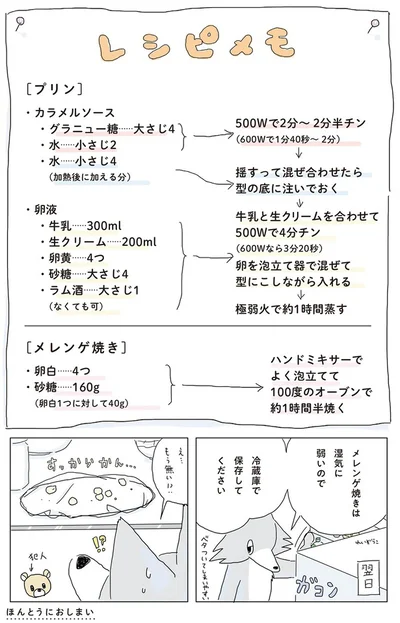 レシピメモ
［プリン］
・カラメルソース
・グラニュー糖……大さじ4
・水……小さじ2
・水……小さじ4
（加熱後に加える分）
500Wで2分～2分半チン
（600Wで1分40秒～2分）
揺すって混ぜ合わせたら
型の底に注いでおく
・卵液
・牛乳……300ml
・生クリーム……200ml
・卵黄……4つ
・砂糖……大さじ4
・ラム酒……大さじ1
（なくても可）
牛乳と生クリームを合わせて
500Wで4分チン
（600Wなら3分20秒）
卵を泡立て器で混ぜて
型にこしながら入れる
極弱火で約1時間蒸す
［メレンゲ焼き］
・卵白……4つ
・砂糖……160g
（卵白1つに対して40g）
ハンドミキサーで
よく泡立てて
100度のオーブンで
約1時間半焼く
翌日
れいぞうこ
ガコン
メレンゲ焼きは
湿気に
弱いので
冷蔵庫で
保存して
ください
ベタついてしまいやすい
え…
もう無い…??
すっからかん…
!?
犯人
ほんとうにおしまい